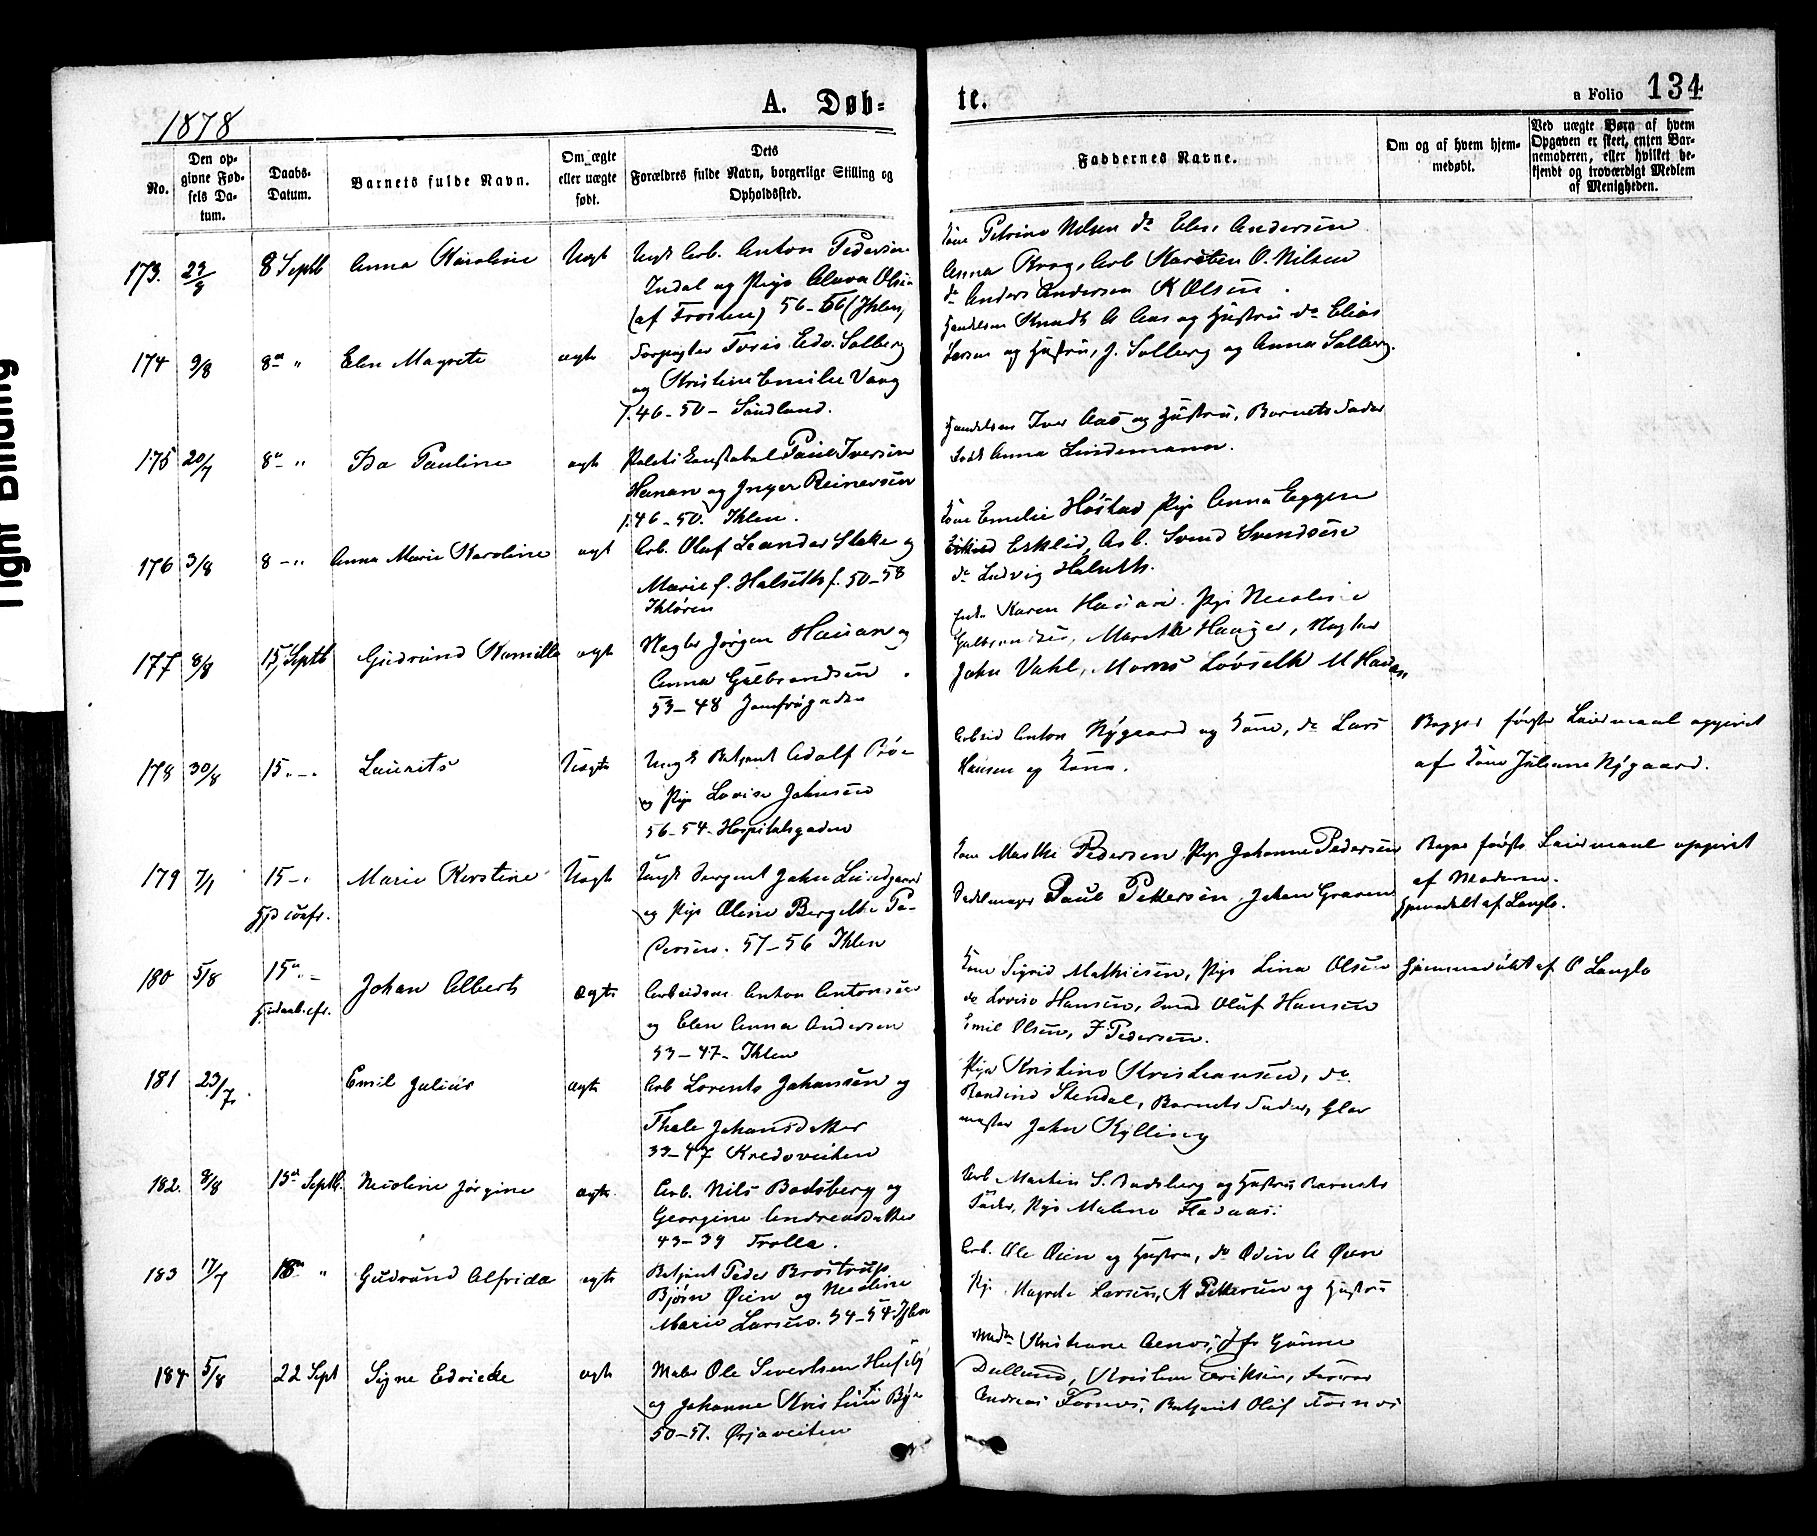 1878
A. Døb-
te.
a Folio 134
No.
Den op-
givne Fød-
sels Da-
tum.
Daabs-
Datum.
Barnets fulde Navn.
Om ægte
eller uægte
født.
Dets
Forældres fulde Navn, borgerlige Stilling og
Opholdssted.
Faddernes Navne.
Om og af hvem hjem-
medøbt.
Ved uægte Børn af hvem
Opgaven er skeet, enten Bar-
nemoderen, eller hvilket be-
kjendt og troværdigt Medlem
af Menigheden.
173. 8 Septb Anna Karoline Uægt Ungk Arb. Anton Pedersen
Indal og Pige Olava Olsen
(af Frosten) 56-56 (Ihlen)
Kone Petrine Nilsen do Elen Andersen
Anna Krog, Arb Karsten O. Nilsen
do Anders Andersen K Olsen.
174 9/8 8de " Elen Magrete ægte Edv. Solberg
og Kristine Emilie Vang
f. 46-50- Sundland.
Handelsm Knudt A Aas og Hustru do Elias
Larsen og Hustru, J. Solberg og Anna Solberg.
175 20/7 8de " Ida Pauline ægte Politi Constabel Paul Iversen
Hanan og Inger Reinersen
f 46-50. Ihlen.
Handelsm Iver Aas og Hustru, Barnets Fader
Anna Lindemann.
176 3/8 8 - " Anna Marie Karoline ægt Arb. Oluf Leander Slekke og
Marie f. Halseth f. 50-58
Ihløren
Kone Emelie Høstad Pige Anna Eggen
Esklid, Arb. Svend Svendsen
do Ludvig Halseth.
177 8/8 15 Septb Gudrund Kamilla ægt Nagler Jørgen Hauan og
Anna Gulbrandsen
53-48 Jomfrugaden
Enke Karen Hauan. Pige Nicoline
Gulbrandsen, Marith Hauger, Nagler
John Vahl, Morns Løvseth M Hauan
178 30/8 15 " - Laurits Uægte Ungk Betjent Adolf
og Pige Lovise Johnsen
56-54- Hospitalsgaden
Arbeid Anton Nygaard og Kone, do Lars
Hansen og Kone.
Begges første Leiermaal opgivet
af Kone Juliane Nygaard.
179 7/1 15 - " Marie Kirstine Uægte Ungk Sergent John Lundgaard
og Pige Oline Bergette Pe-
dersen. 57-56 Ihlen
Kone Marthe Pedersen, Pige Johanne Pedersen
Sadelmager Paul Pettersen Johan Graven
Begges første Leiermaal opgivet
af Moderen.
Hjemmedøbt af Langlo.
180 5/8 15de " - Johan Albert Ægte Arbeidsm. Anton Antonsen
og Elen Anna Andersen
53-47- Ihlen
Kone Sigrid Mathiesen, Pige Lina Olsen
do Lovise Hansen, Smed Oluf Hansen
Emil Olsen, F Pedersen.
Hjemmedøbt af O Langlo
181 23/7 Emil Julius ægte Arb Lorents Johansen og
Thale Johansdatter
33-47 Kredsveiten
Pige Kristine Kristiansen, do
Randine Stendal, Barnets Fader, Glar
mester John Kylling
182. 8/8 15de Septb. Nicoline Jørgine ægte. Arb. Nils Badsberg og
Georgine Andreasdatter
43-39 Trolla.
Arb. Martin S. Badsberg og Hustru Barnets
Fader, Pige Malene Flataas.
183 17/7 15de " Gudrund Alfrida ægte Betjent Peder Brostrup
Bjørn Øien og Nicoline
Marie Larsen. 54-54. Ihlen
Arb. Ole Øien og Hustru, do Odin A Øien
Pige Magrete Larsen, A Pettersen og Hustru
184 5/8 22 Sept Signe Edvicke ægte Maler Ole Sivertsen Husby
og Johanne Kristine Bye
50-51. Ørjaveiten
Kristiane Aenos, Jfr Gunne
Dullund, Kristen Eriksen,
Andreas Fornes, Betjent Oluf Fornes
Tight Binding